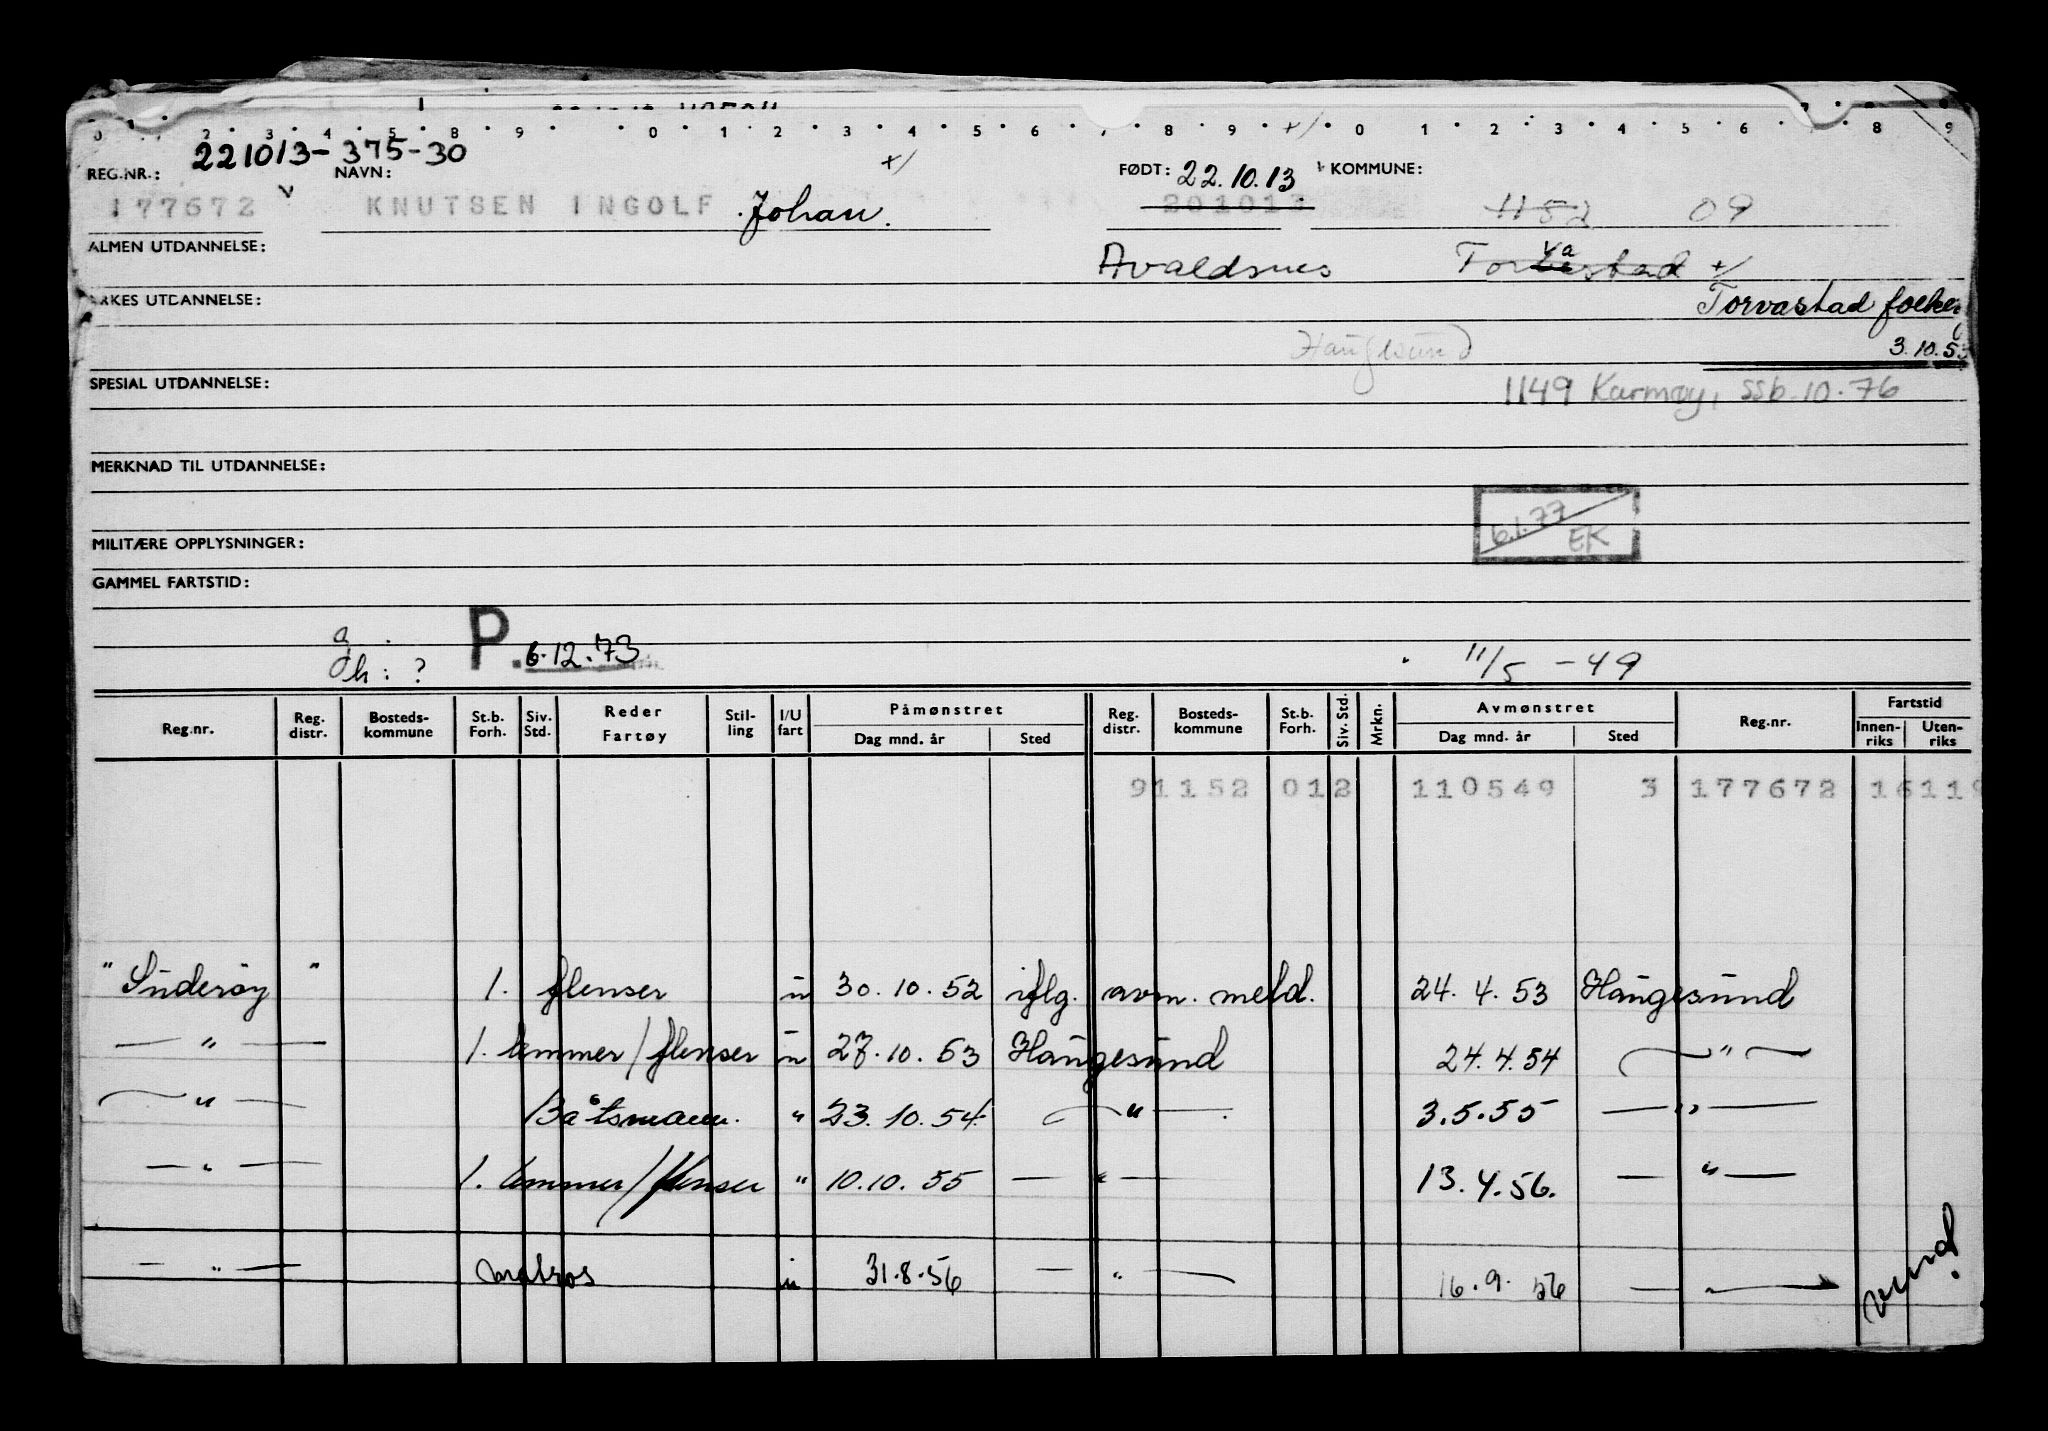 0 2 3 4 5 8 9 0 1 2 3 4 5 6 7 8 9 +/ 0 1 2 3 4 5 6 7 8 9
REG.NR.: 221013-375-30 NAVN: +/ FØDT: 22.10.13 KOMMUNE:
177672 v KNUTSEN INGOLF Johan. 201013 1152 09
ALMEN UTDANNELSE: Avaldsnes Torvastad +/
YRKES UTDANNELSE: Torvastad folker
Haugesund 3.10.53
SPESIAL UTDANNELSE: 1149 Karmøy, ssb. 10.76
MERKNAD TIL UTDANNELSE:
6.1.77 EK
MILITÆRE OPPLYSNINGER:
GAMMEL FARTSTID:
a
Oh : ? P. 6.12.73 11/5 - 49
Reg.nr. Reg. distr. Bosteds- kommune St.b. Forh. Siv. Std. Reder Fartøy Stil- ling I/U fart Påmønstret Dag mnd. år Sted Reg. distr. Bosteds- kommune St.b. Forh. Siv. Std. Mrkn. Avmønstret Dag mnd. år Sted Reg.nr. Fartstid Innen- riks Uten- riks
91152 012 110549 3 177672 16119
"Suderøy" 1. flenser u 30.10.52 iflg. avm. meld. 24.4.53 Haugesund
— " — 1. lemmer/flenser u 27.10.53 Haugesund 24.4.54 — " —
— " — Båtsmann. " 23.10.54 — " — 3.5.55 — " —
— " — 1. lemmer/flenser " 10.10.55 — " — 13.4.56. — " —
— " — matros u 31.8.56 — " — 16.9.56 — " —
vend